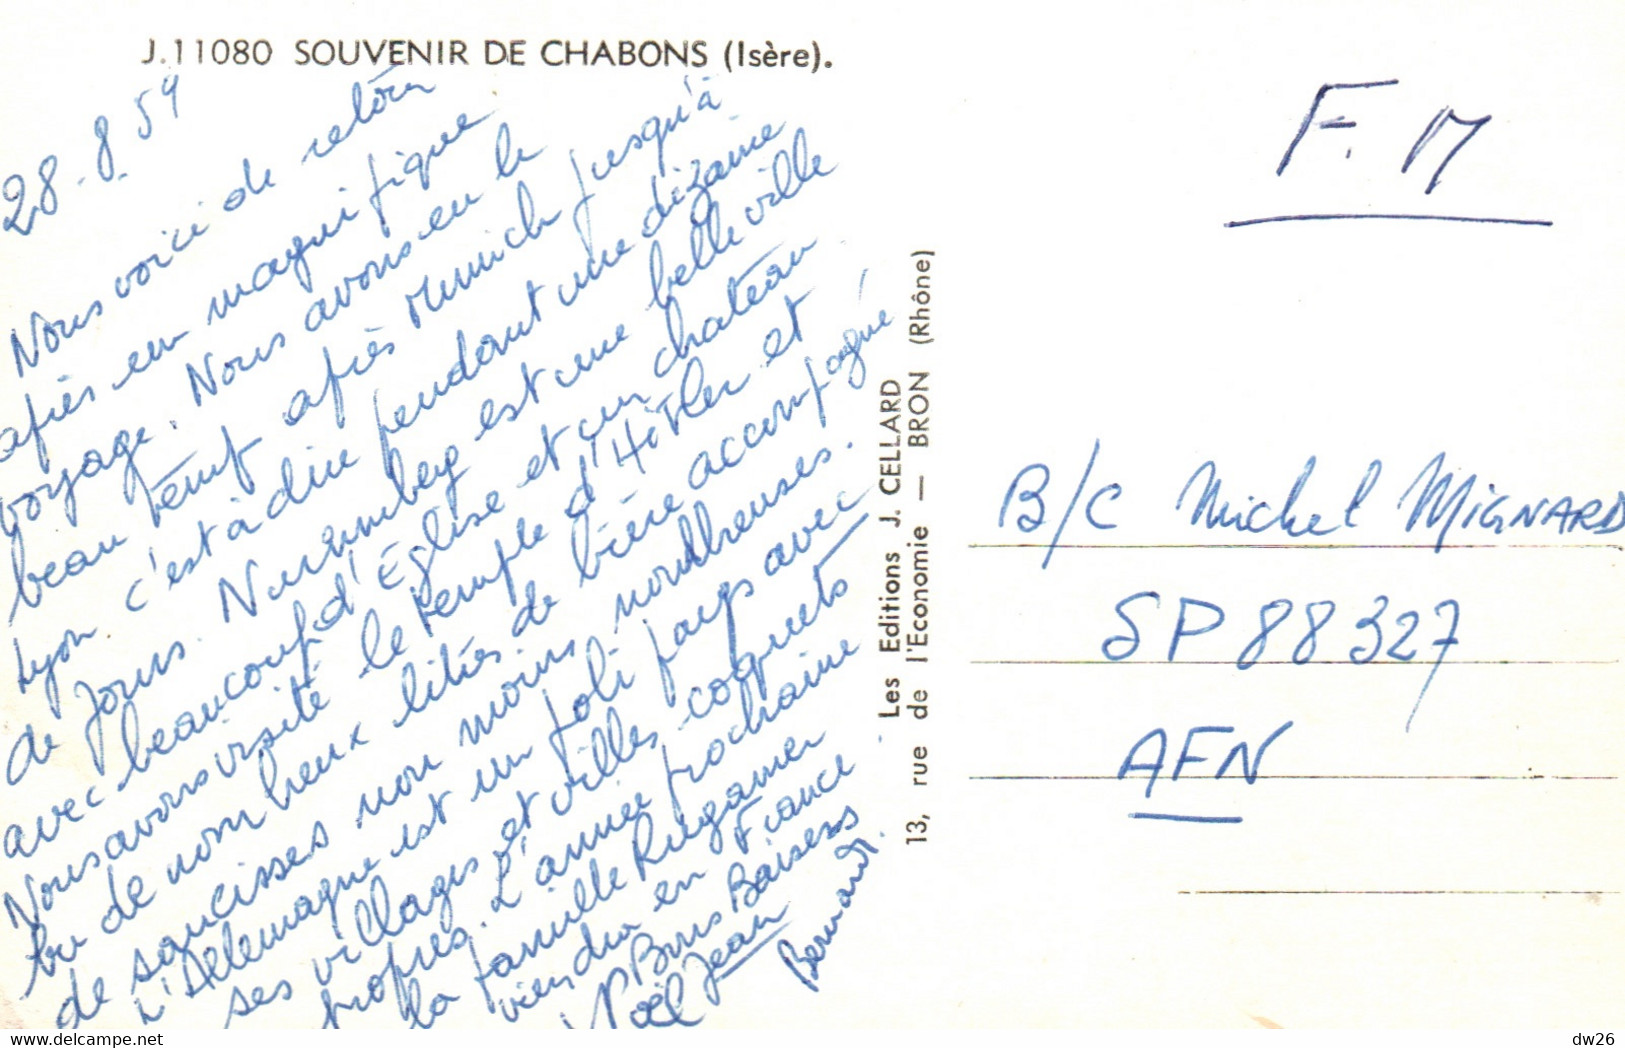 J.11080 SOUVENIR DE CHABONS (Isère).
28-8-59
Nous voici de retour
après un magnifique
voyage. Nous avons eu le
beau temps après Munich jusqu'à
Lyon c'est à dire pendant une dizaine
de jours. Nuremberg est une belle ville
avec beaucoup d'Eglise et un chateau
Nous avons visité le temple d'Hitler et
bu de nombreux litres de bière accompagné
de saucisses non moins nombreuses.
L'Allemagne est un joli pays avec
ses villages et villes coquets
propres. L'année prochaine
la famille Rugamer
viendra en France
Bons Baisers
Noël Jean
Bernard.
Les Editions J. CELLARD
13, rue de l'Economie — BRON (Rhône)
F. M
B/C Michel MIGNARD
SP 88327
AFN
delcampe.net
dw26